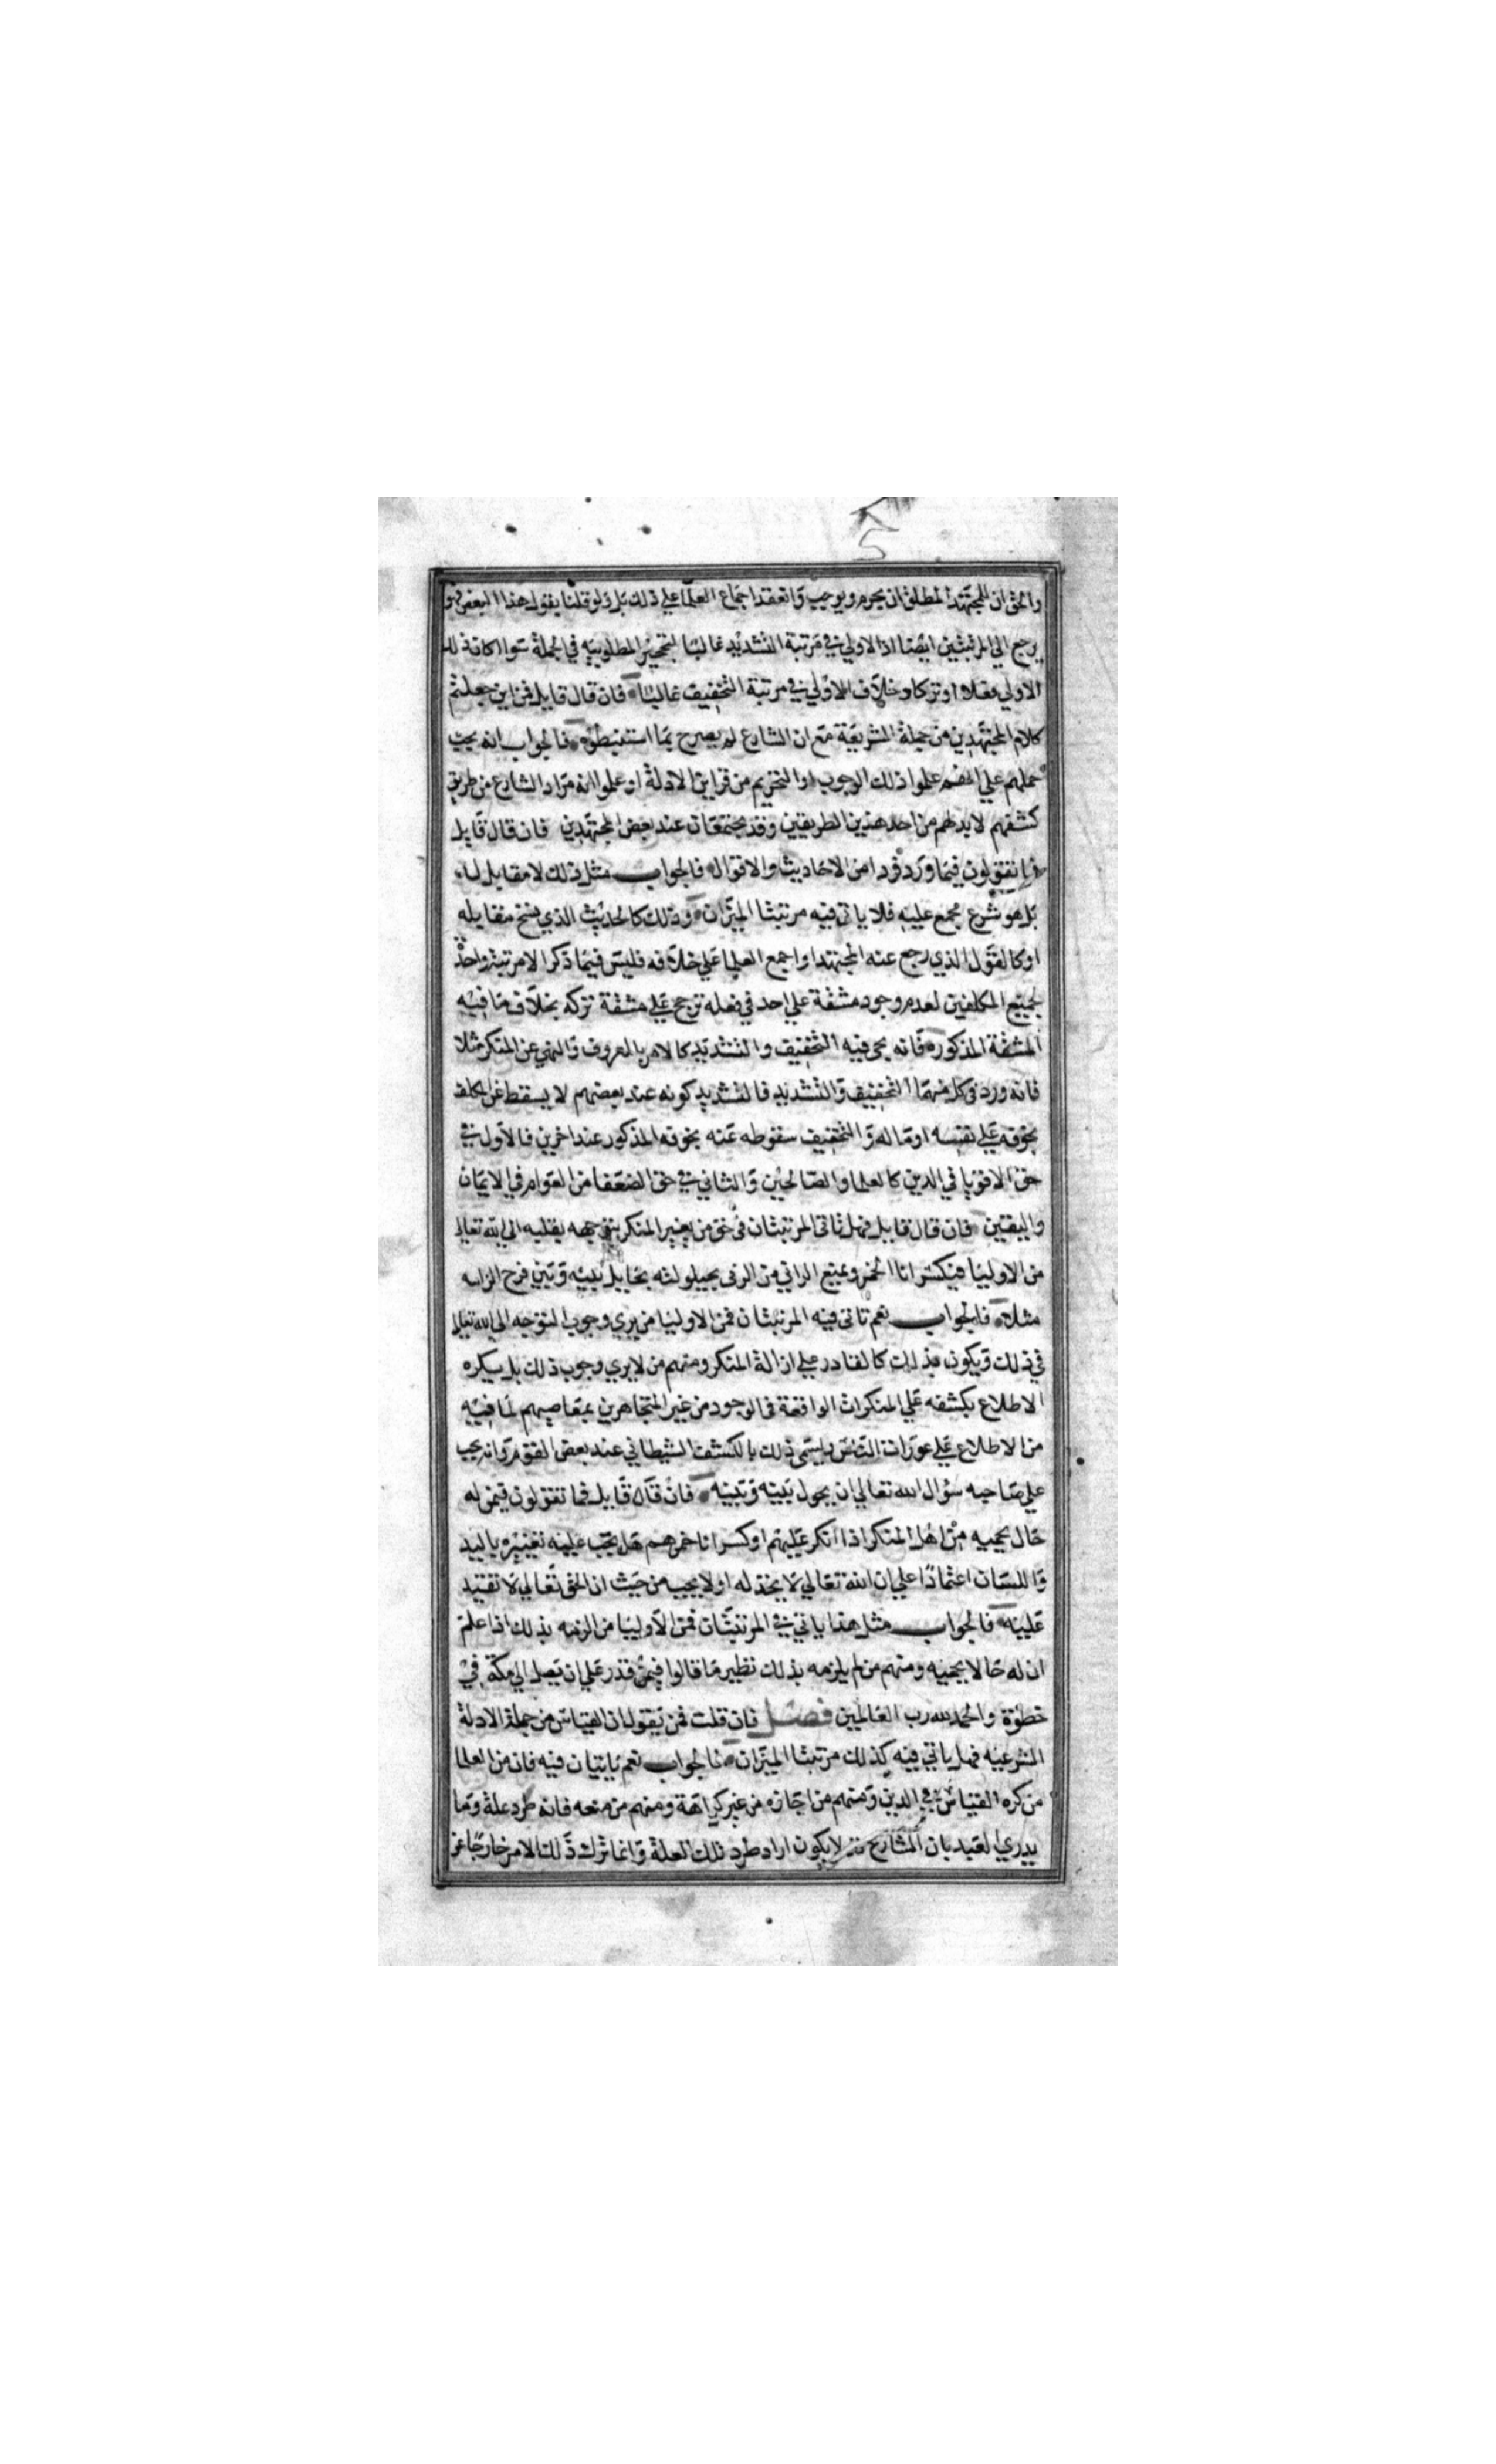 والحق ان للمجتهد المطلق ان يحرم ويوجب وانعقد اجماع العلما علي ذلك بل ولو قلنا بقول هذا البعض فهو
يرجع الي المرتبتين ايضا اذ الاولي في مرتبة التشديد غالبا لتحجير المطلوبيه في الجملة سوا كان ذلك
الاولي فعلا او تركا وخلاف الاولي في مرتبة التخفيف غالبا فان قال قايل فمن اين جعلتم
كلام المجتهدين من جملة الشريعة مع ان الشارع لم يصرح بما استنبطوه فالجواب انه يجب
حملهم علي انهم علموا ذلك الوجوب او التحريم من قراين الادلة او علموا انه مراد الشارع من طريق
كشفهم لا بد لهم من احد هذين الطريقين وقد يجتمعان عند بعض المجتهدين فان قال قايل
فما تقولون فيما ورد فردا من الاحاديث والاقوال فالجواب مثل ذلك لا مقابل له
بل هو شرع مجمع عليه فلا ياتي فيه مرتبتا الميزان وذلك كالحديث الذي نسخ مقابله
او كالقول الذي رجع عنه المجتهد او اجمع العلما علي خلافه فليس فيما ذكر الا مرتبة واحدة
لجميع المكلفين لعدم وجود مشقة علي احد في فعله ترجح علي مشقة تركه بخلاف ما فيه
المشقة المذكوره فانه يجي فيه التخفيف والتشديد كالامر بالمعروف والنهي عن المنكر مثلا
فانه ورد في كل منهما التخفيف والتشديد فالتشديد كونه عند بعضهم لا يسقط عن المكلف
بخوفه علي نفسه او ماله والتخفيف سقوطه عنه بخوفه المذكور عند اخرين فالاول في
حق الاقويا في الدين كالعلما والصالحين والثاني في حق الضعفا من العوام في الايمان
واليقين فان قال قايل فهل تاتي المرتبتان في حق من يغير المنكر بتوجهه بقلبه الي الله تعالي
من الاوليا فيكسر انا الخمر ويمنع الزاني من الزنى بحيلولته بحايل بينه وبين فرج الزانيه
مثلا فالجواب نعم تاتي فيه المرتبتان فمن الاوليا من يري وجوب التوجه الي الله تعالي
في ذلك ويكون بذلك كالقادر علي ازالة المنكر ومنهم من لا يري وجوب ذلك بل يكره
الاطلاع بكشفه علي المنكرات الواقعة في الوجود من غير المتجاهرين بمعاصيهم لما فيه
من الاطلاع علي عورات الناس ويسمى ذلك بالكشف الشيطاني عند بعض القوم وانه يجب
علي صاحبه سؤال الله تعالي ان يحول بينه وبينه فان قال قايل فما تقولون فيمن له
حال يحميه من اهل المنكر اذا انكر عليهم او كسر انا خمرهم هل يجب عليه تغييره باليد
واللسان اعتمادا علي ان الله تعالي لا يخذله او لا يجب من حيث ان الحق تعالي لا تقييد
عليه فالجواب مثل هذا ياتي في المرتبتان فمن الاوليا من الزمه بذلك اذا علم
ان له حالا يحميه ومنهم من لم يلزمه بذلك نظير ما قالوا فيمن قدر علي ان يصل الي مكة في
خطوة والحمد لله رب العالمين فصل فان قلت فمن يقول ان القياس من جملة الادلة
الشرعيه فهل ياتي فيه كذلك مرتبتا الميزان فالجواب نعم ياتيان فيه فان من العلما
من كره القياس في الدين ومنهم من اجازه من غير كراهة ومنهم من منعه فانه طرد علة وما
يدري العبد بان الشارع لا يكون اراد طرد تلك العلة وانما ترك ذلك الامر خارجا عن